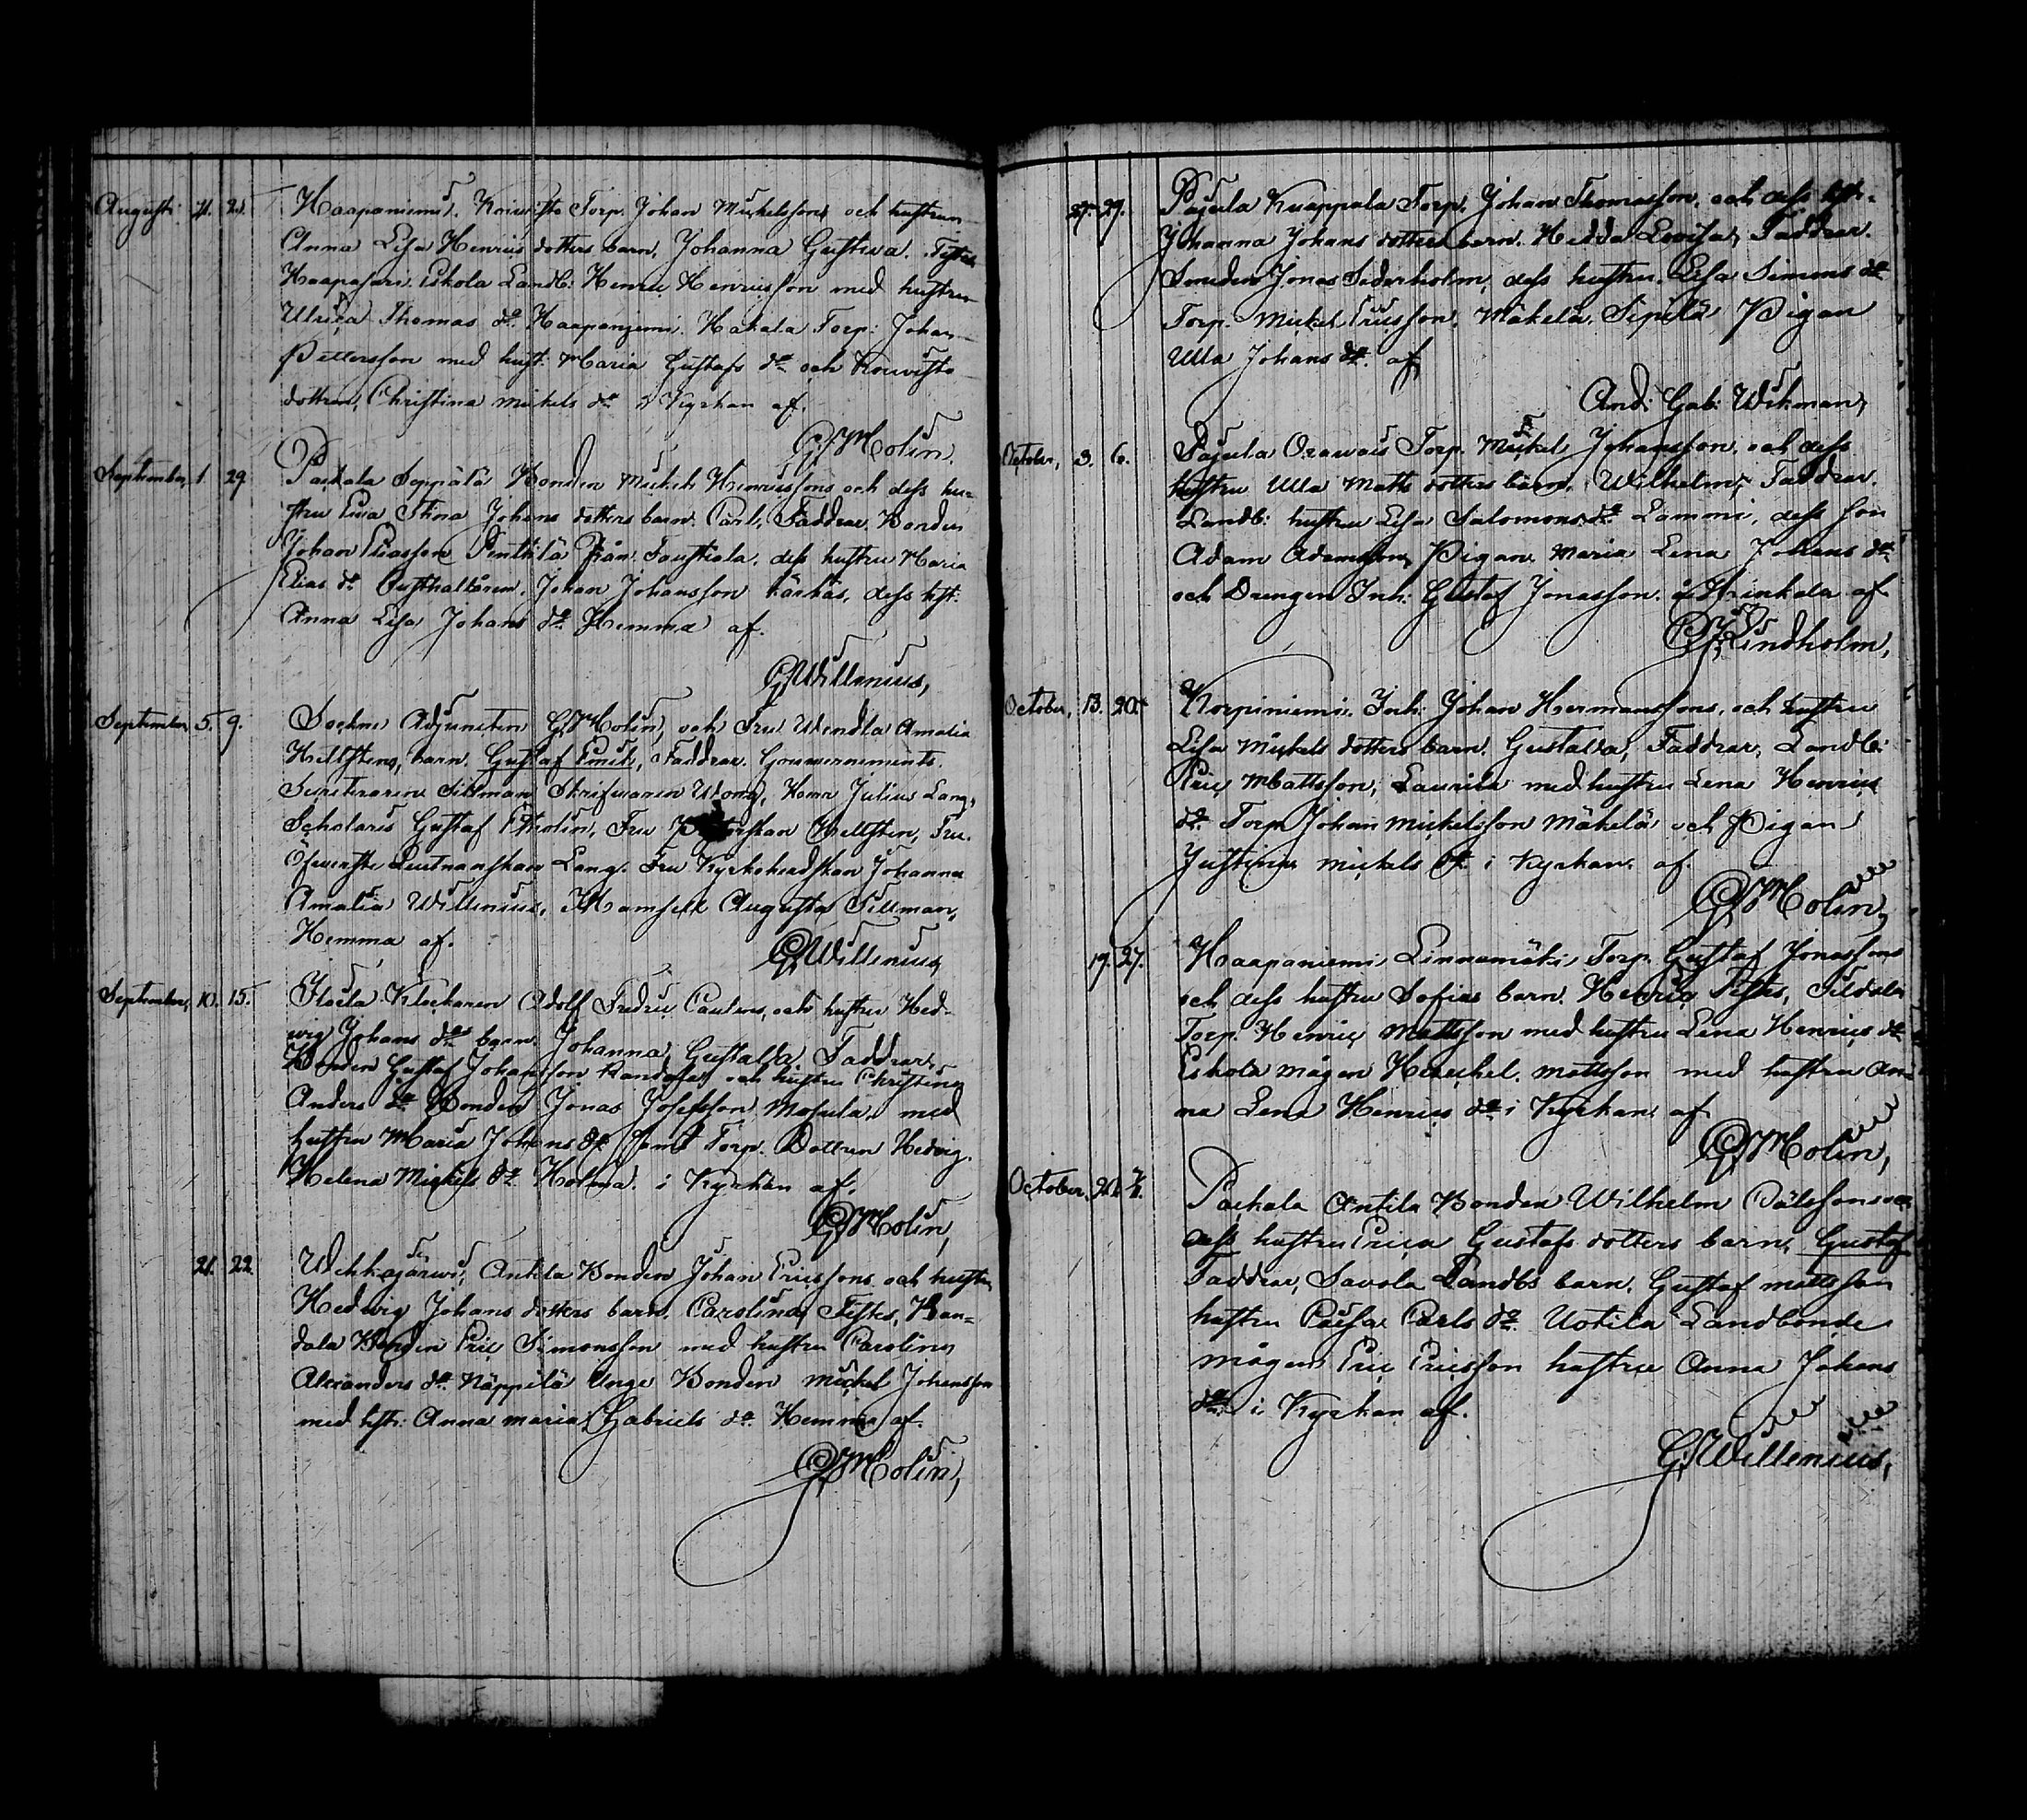 Augusti 21. 25. Haapaniemi. Koivisto Torp. Johan Michelssons och hustrun
Anna Lisa Henrics dotters barn, Johanna Gustava. Testes
Haapasari. Eskola Landb: Henric Henricsson med hustrun
Ulrica Thomas dr. Haapaniemi. Hakala Torp: Johan
Pettersson med hust: Maria Gustafs dr och Koivisto
dottren, Christina Mickels dr i Kyrkan af.
G. Molin.
September, 1. 29. Packala Seppälä Bonden Michel Henricssons och dess hu-
stru Eva Stina Johans dotters barn. Carl. Faddrar. Bonden
Johan Eliasson Penttilä från Saustiala, dess hustru Maria
Elias dr Rusthallaren. Johan Johansson Kärkäs, dess hst.
Anna Lisa Johans dr. Hemma af.
G. Willenius,
September, 5. 9. Sockne Adjuncten G. Molin, och Fru Wendla Amalia
Hellstens, barn. Gustaf Emil, Faddrar. Gouvernements
Secreteraren Tillman Skrifvaren Herr Julius Lang,
Scholaris Gustaf Fru Hellsten, Fru
Öfwerste Leutnanskan Lang. Fru Kyrkoherdskan Johanna
Amalia Willenius, Mamsell Augusta Tillman,
Hemma af.
G. Willenius,
September, 10. 15. Klockaren Adolf Fredric och hustru Hed-
wig Johans drs barn. Johanna Gustava Faddrar,
Bonden Gustaf Johansson och hustru Christina
Anders dr Bonden Jonas Josefsson med
hustru Maria Johans dr samt Torp. Dottren Hedvig.
Helena Mickels dr. Holma. i Kyrkan af.
G. Molin,
21. 22. Wehkajärwi, Anttila Bonden Johan Ericssons och hustru
Hedwig Johans dotters barn. Carolina, Testes, Ban-
dala Bonden Eric Simonsson med hustru Carolina
Alexanders dr. Näppilä Unge Bonden Mickel Johansson
med hstr: Anna Maria Gabriels dr Hemma af.
G. Molin,
27. 29. Pajula Knappala Torp. Johan Thomasson, och dess hstr.
Johanna Johans dotters barn. Hedda Lovisa, Faddrar.
Smeden Jonas Sederholm, dess hustru. Lisa Simons dr
Torp. Mickel Ericsson. Mäkelä. Sipilä Pigan
Ulla Johans dr. af
And: Gab: Wikman,
October, 3. 6. Pajula Orawais Torp. Mickel Johansson, och dess
hustru Ulla Matts dotters barn. Wilhelm, Faddrar.
Landb: hustru Lisa Salomons dr Lammi, dess son
Adam Adamsson, Pigan Maria Lena Johans dr
och Drengen Inh: Gustaf Jonasson. af
Lindholm,
October, 13. 20. Korpiniemi. Inh: Johan Hermanssons, och hustru
Lisa Mickels dotters barn. Gustava, Faddrar, Landb:
Eric Mattsson, Laurila med hustru Lena Henrics
dr. Torp. Johan Mickelsson Mäkelä och Pigan
Justina Mickels dr i Kyrkan. af
G. Molin,
19. 27. Haapaniemi, Linnamäki, Torp. Gustaf Jonassons
och dess hustru Sofias barn. Henric Testes,
Torp. Henric Mattsson med hustru Lena Henrics dr
Eskola mågen Heschel. Mattsson med hustru An-
na Lena Henrics dr i Kyrkan af
G. Molin,
October, Packala Antila Bonden Wilhelm och
dess hustru Erica Gustafs dotters barn, Gustaf
Faddrar, Savola Landbs barn. Gustaf Mattsson
hustru Caisa Carls dr. Uotila Landbonde
mågen Eric Ericsson hustru Anna Johans
dr. i Kyrkan af.
G. Willenius,